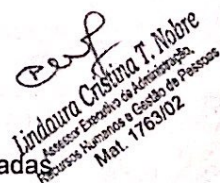 Lindaura Cristina T. Nobre
Assessor Executivo de Administração,
Recursos Humanos e Gestão de Pessoas
Mat. 1763/02
adas